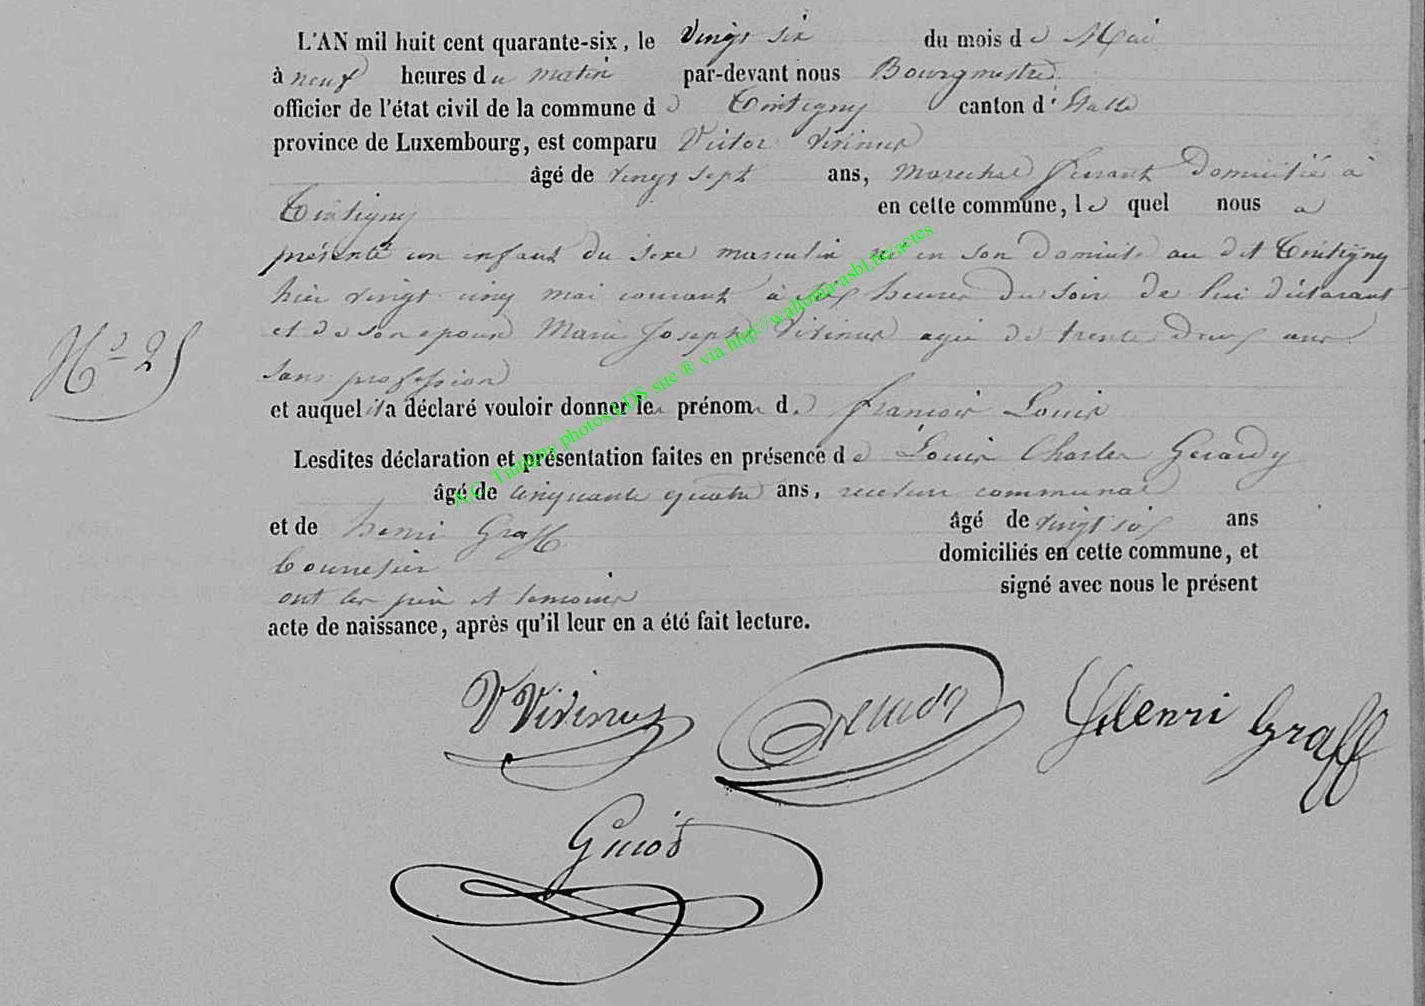 L'AN mil huit cent quarante-six, le vingt six du mois de Mai
à neuf heures du matin par-devant nous Bourgmestre
officier de l'état civil de la commune de Tintigny canton d'Etalle
province de Luxembourg, est comparu Victor Vivinus
âgé de vingt sept ans, marechal ferrant domicilié à
Tintigny en cette commune, le quel nous a
présenté un enfant du sexe masculin né en son domicile au dit Tintigny
hier vingt cinq mai courant à heures du soir de lui déclarant
et de son epouse Marie Joseph Vivinus agée de trente deux ans
sans profession
et auquel il a déclaré vouloir donner les prénoms de François Louis
Lesdites déclaration et présentation faites en présence de Louis Charles Gerardy
âgé de cinquante quatre ans, receveur communal
et de henri Graff âgé de vingt six ans
domiciliés en cette commune, et
ont les père et temoins signé avec nous le présent
acte de naissance, après qu'il leur en a été fait lecture.
N° 25
V Vivinus Henri Graff
A.C. Tintigny photos LDS site ® via http://wallonia-asbl.be/actes